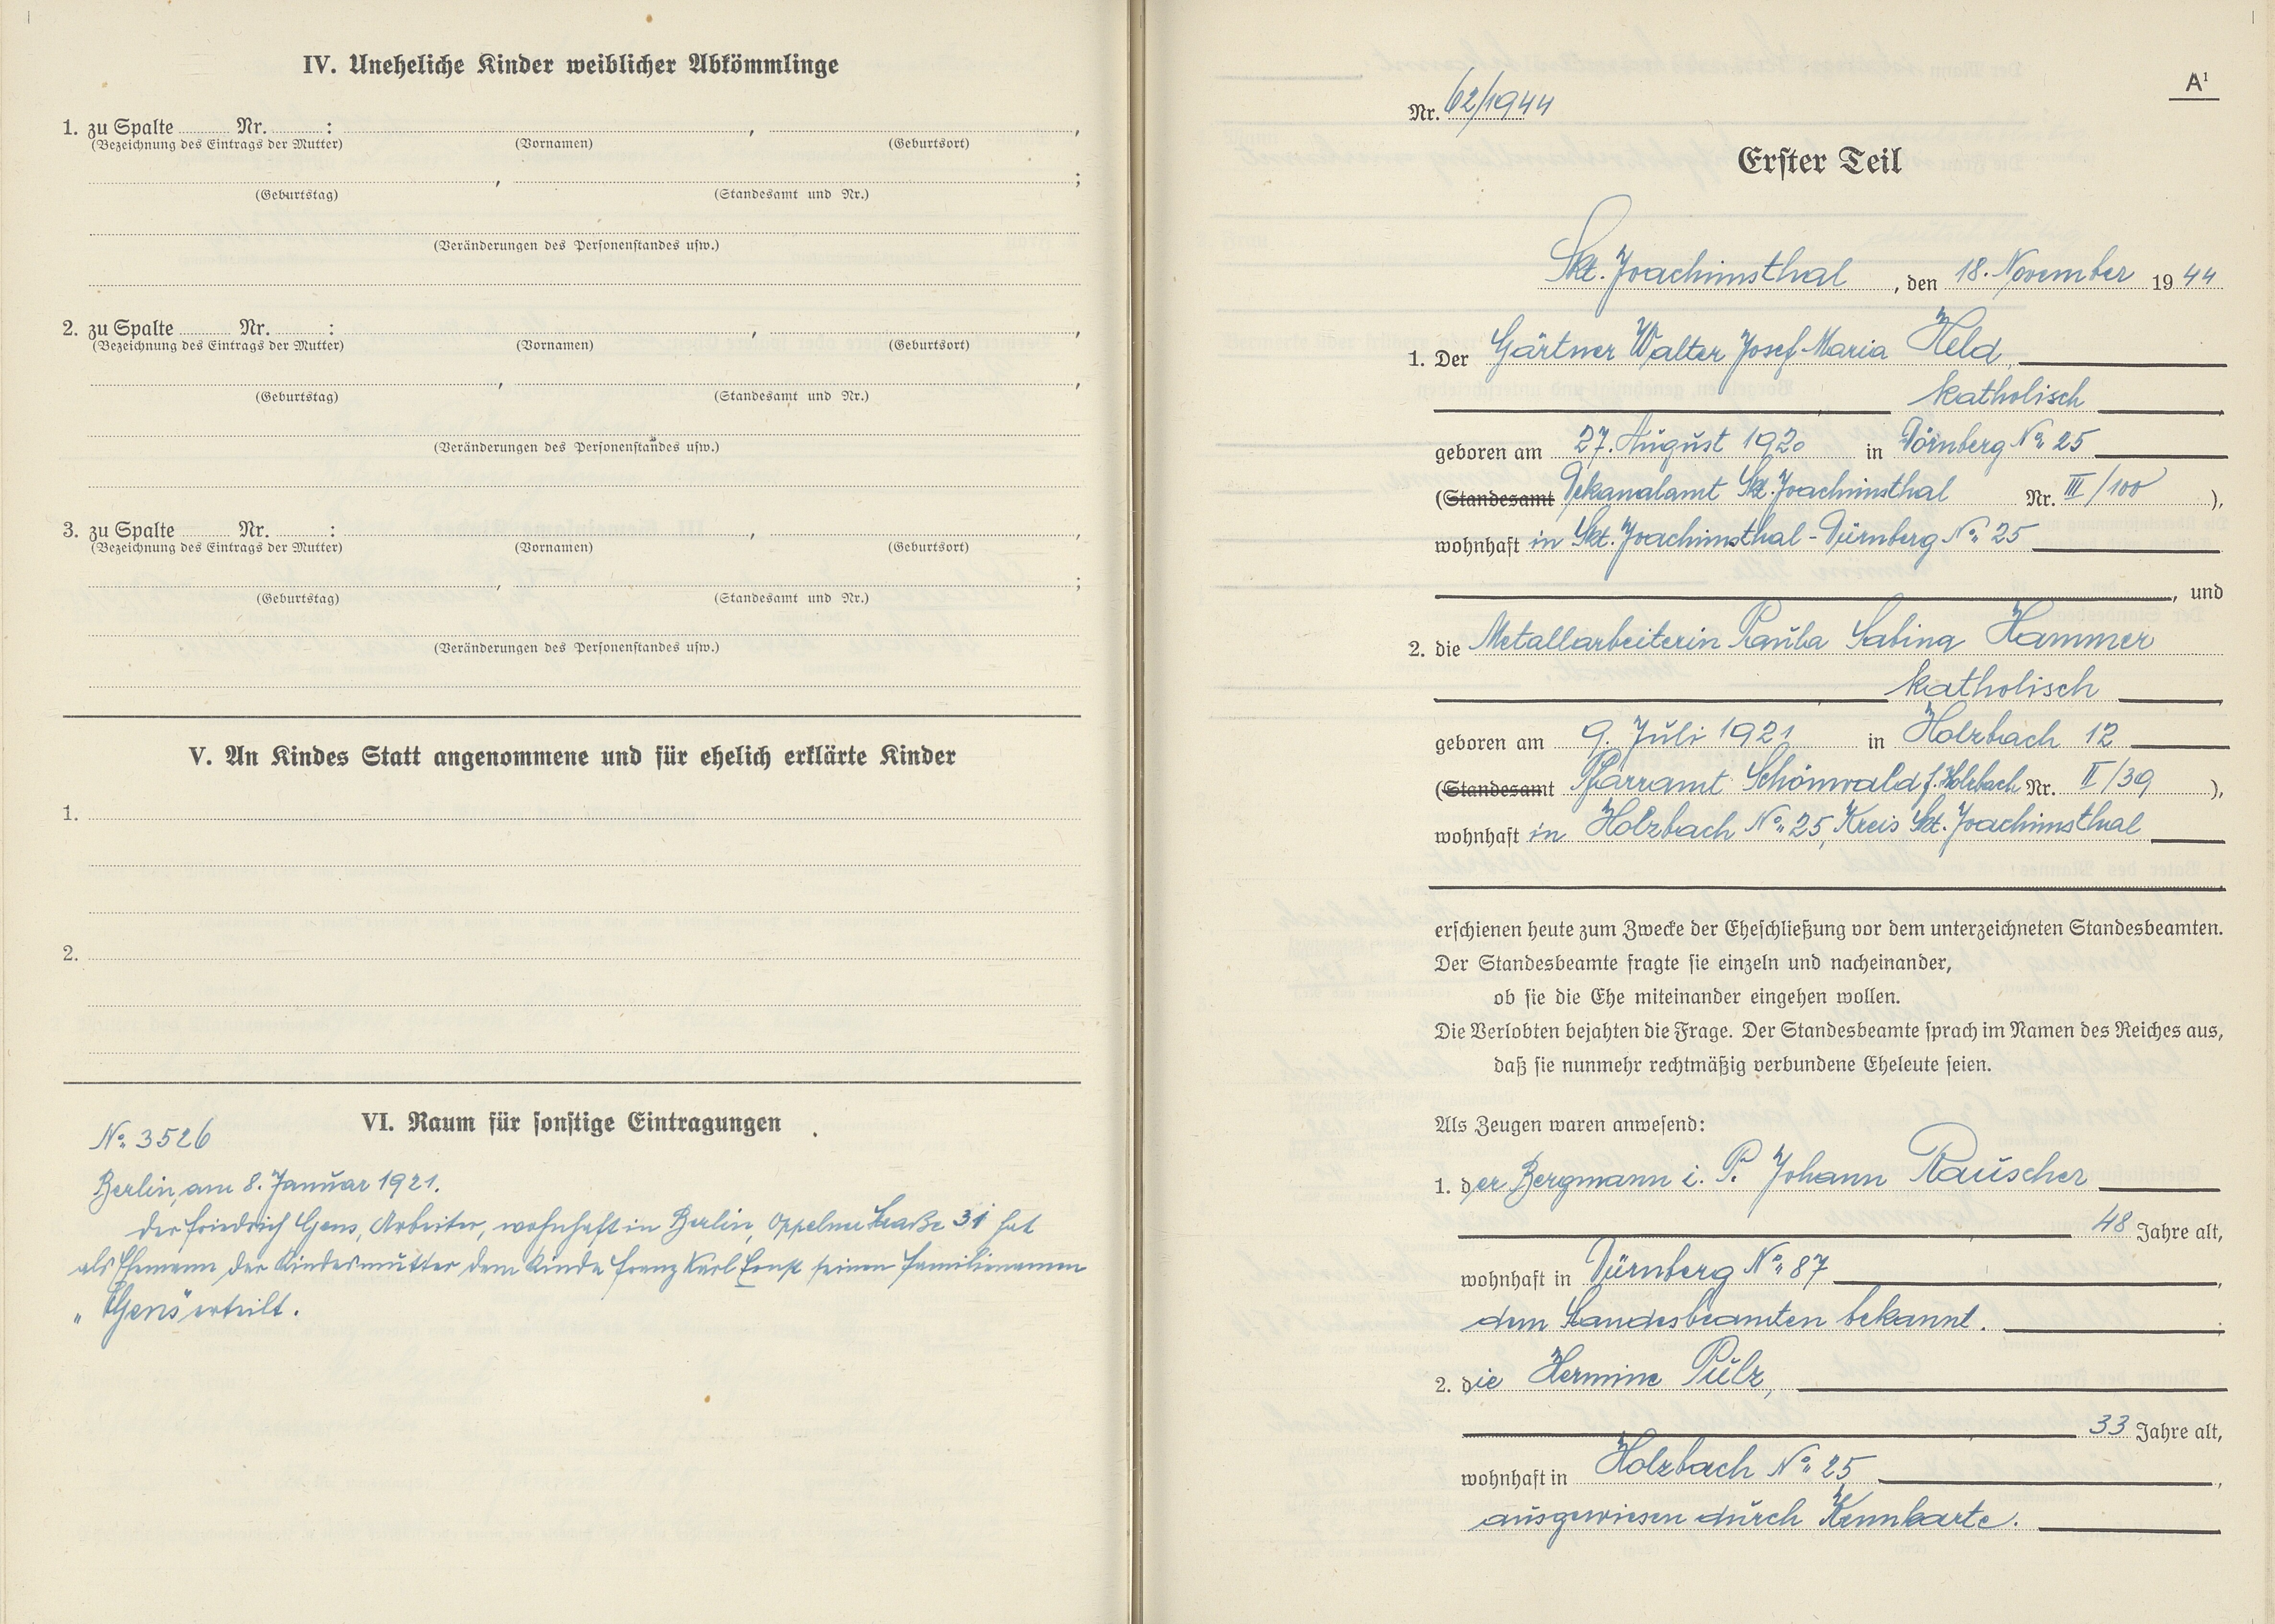 IV. Uneheliche Kinder weiblicher Abkömmlinge
1. zu Spalte ........ Nr. ........ : ........, ........,
(Bezeichnung des Eintrags der Mutter) (Vornamen) (Geburtsort)
........, ........;
(Geburtstag) (Standesamt und Nr.)
(Veränderungen des Personenstandes usw.)
2. zu Spalte ........ Nr. ........ : ........, ........,
(Bezeichnung des Eintrags der Mutter) (Vornamen) (Geburtsort)
........, ........,
(Geburtstag) (Standesamt und Nr.)
(Veränderungen des Personenstandes usw.)
3. zu Spalte ........ Nr. ........ : ........, ........,
(Bezeichnung des Eintrags der Mutter) (Vornamen) (Geburtsort)
........, ........;
(Geburtstag) (Standesamt und Nr.)
(Veränderungen des Personenstandes usw.)
V. An Kindes Statt angenommene und für ehelich erklärte Kinder
1.
2.
VI. Raum für sonstige Eintragungen
No. 3526
Berlin, am 8. Januar 1921.
Der Friedrich Gens, Arbeiter, wohnhaft in Berlin, Oppelner Straße 31 hat
als Ehemann der Kindesmutter dem Kinde Franz Karl Ernst seinen Familiennamen
„Gens" erteilt.
A¹
Nr. 62/1944
Erster Teil
Skt. Joachimsthal, den 18. November 1944
1. Der Gärtner Walter Josef Maria Held,
katholisch,
geboren am 27. August 1920 in Dürnberg No. 25
(Standesamt Dekanalamt Skt. Joachimsthal Nr. III/100),
wohnhaft in Skt. Joachimsthal-Dürnberg No. 25
, und
2. die Metallarbeiterin Paula Sabina Hammer
katholisch,
geboren am 9. Juli 1921 in Holzbach 12
(Standesamt Pfarramt Schönwald f. Holzbach Nr. II/39),
wohnhaft in Holzbach No. 25, Kreis Skt. Joachimsthal
erschienen heute zum Zwecke der Eheschließung vor dem unterzeichneten Standesbeamten.
Der Standesbeamte fragte sie einzeln und nacheinander,
ob sie die Ehe miteinander eingehen wollen.
Die Verlobten bejahten die Frage. Der Standesbeamte sprach im Namen des Reiches aus,
daß sie nunmehr rechtmäßig verbundene Eheleute seien.
Als Zeugen waren anwesend:
1. der Bergmann i. P. Johann Rauscher
48 Jahre alt,
wohnhaft in Dürnberg No. 87,
dem Standesbeamten bekannt.
2. die Hermine Pülz,
33 Jahre alt,
wohnhaft in Holzbach No. 25,
ausgewiesen durch Kennkarte.